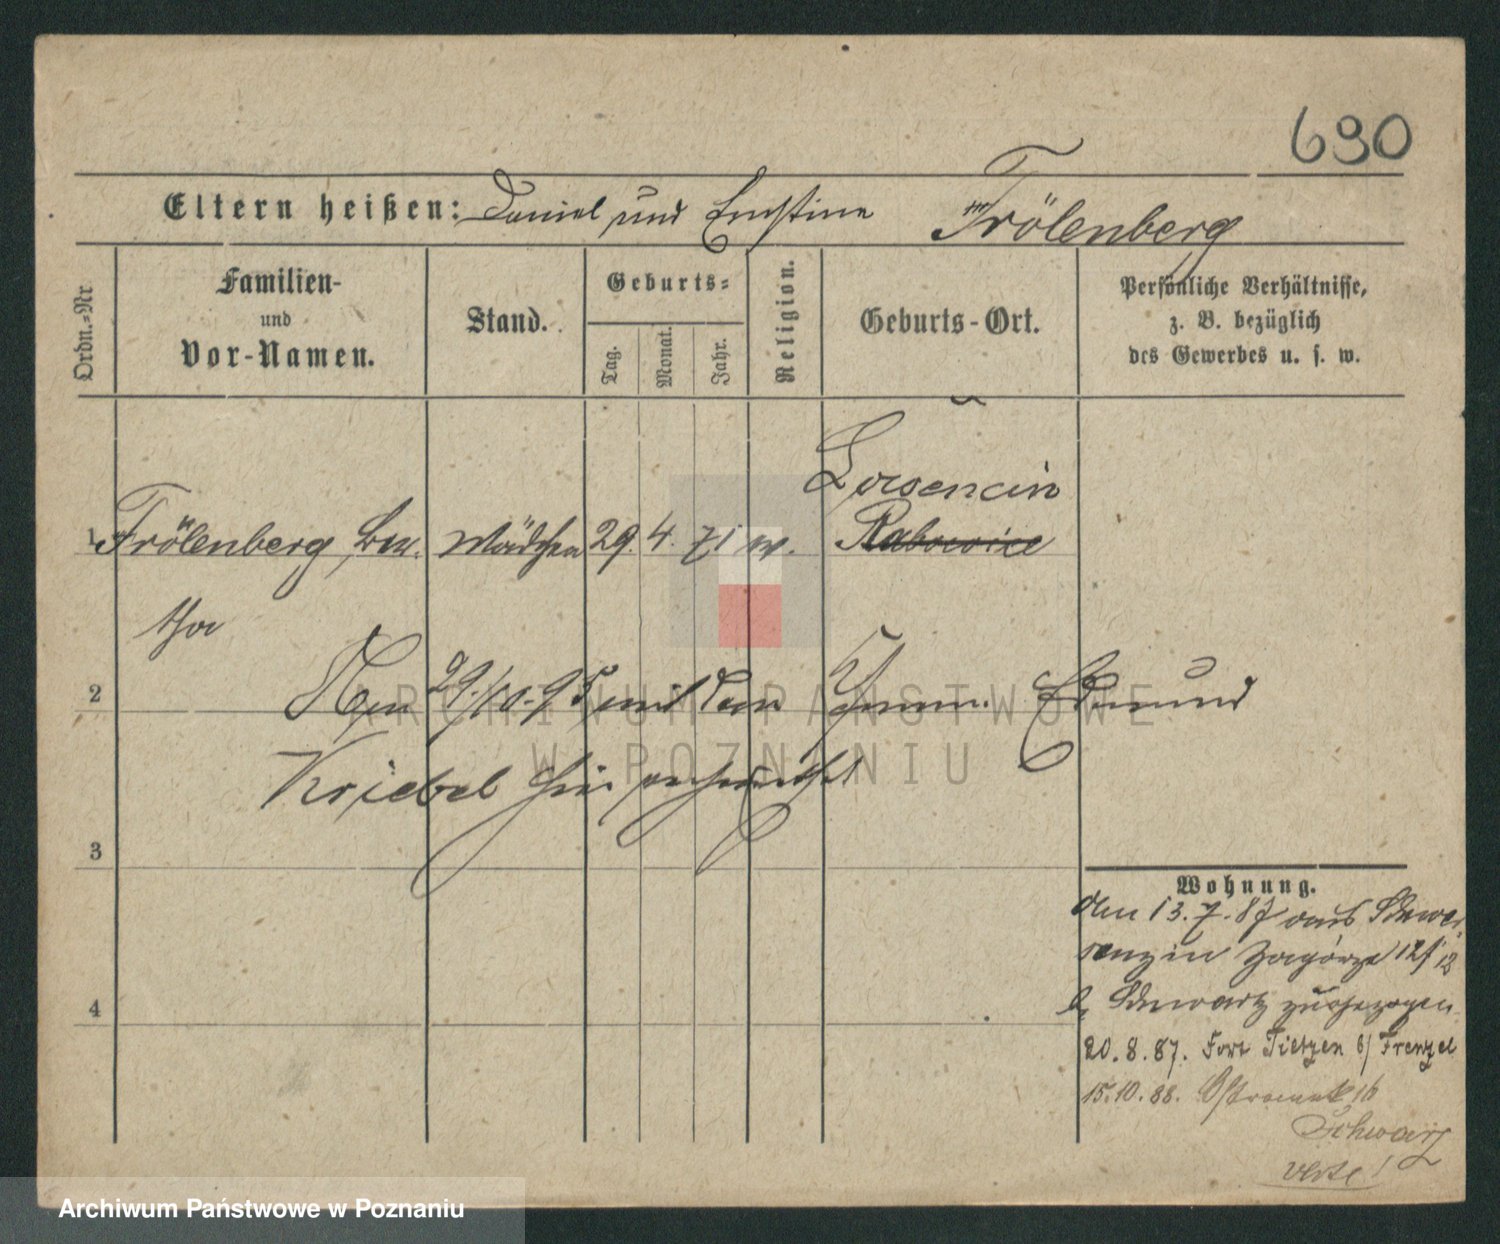 690
Eltern heißen: Daniel und Ernstine Frölenberg
Ordn.-Nr
Familien-
und
Vor-Namen.
Stand.
Geburts-
Tag.
Monat.
Jahr.
Religion.
Geburts-Ort.
Persönliche Verhältnisse,
z. B. bezüglich
des Gewerbes u. s. w.
1 Frölenberg Mädchen 29. 4. 71
tha
2 29/10.95 mit dem Edmund
Kriebel hier
3
4
Wohnung.
den 13.7.87 aus
in Zagórze 12
Schwartz zugezogen
20.8.87. Fort Tietzen b/ Frenzel
15.10.88. 16
Schwarz
verte!
ARCHIWUM PAŃSTWOWE
W POZNANIU
Archiwum Państwowe w Poznaniu